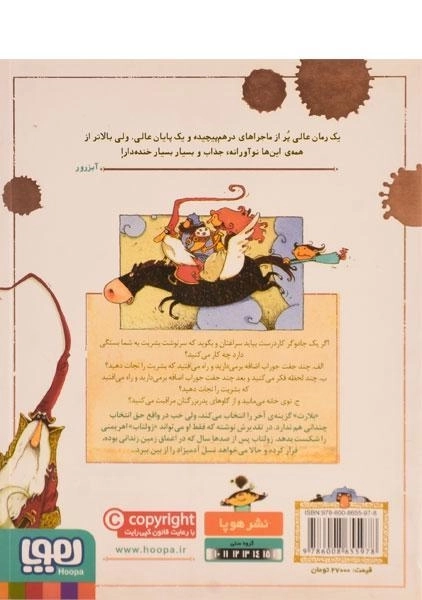 یک رمان عالی پُر از ماجراهای درهم‌پیچیده و یک پایان عالی. ولی بالاتر از
همه‌ی این‌ها نوآورانه، جذاب و بسیار بسیار خنده‌دار!
آبزرور
اگر یک جادوگر کاردرست بیاید سراغتان و بگوید که سرنوشت بشریت به شما بستگی
دارد چه کار می‌کنید؟
الف. چند جفت جوراب اضافه برمی‌دارید و راه می‌افتید که بشریت را نجات دهید؟
ب. چند لحظه فکر می‌کنید و بعد چند جفت جوراب اضافه برمی‌دارید و راه می‌افتید
که بشریت را نجات دهید؟
ج. توی خانه می‌مانید و از گاوهای پدربزرگتان مراقبت می‌کنید؟
«بلارت» گزینه‌ی آخر را انتخاب می‌کند، ولی خب در واقع حق انتخاب
چندانی هم ندارد. در تقدیرش نوشته که فقط او می‌تواند «زولتاب» اهریمنی
را شکست بدهد. زولتاب پس از صدها سال که در اعماق زمین زندانی بوده،
فرار کرده و حالا می‌خواهد نسل آدمیزاد را از بین ببرد.
هوپا
Hoopa
© copyright
با رعایت قانون کپی‌رایت
www.hoopa.ir
نشر هوپا
گروه سنی
۱۰ ۱۱ ۱۲ ۱۳ ۱۴ ۱۵
ISBN 978-600-8655-97-8
9 786008 655978
قیمت: ۲۷۰۰۰ تومان